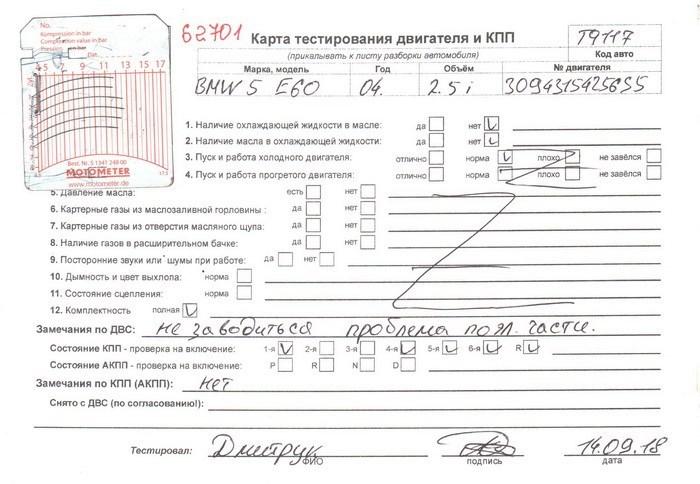 No.
Kompression in bar
Compression value in bar
Pression en bar
62701
Карта тестирования двигателя и КПП
T9117
(прикалывать к листу разборки автомобиля)
Код авто
Марка, модель Год Объём № двигателя
BMW 5 E60 04. 2.5i
4,5 7 9 11 13 15 17
1. Наличие охлаждающей жидкости в масле: да нет
2. Наличие масла в охлаждающей жидкости: да нет
3. Пуск и работа холодного двигателя: отлично норма плохо не завёлся
4. Пуск и работа прогретого двигателя: отлично норма плохо не завёлся
Best. Nr. 5 1341 248 00
MOTOMETER
www.motometer.de
17,5
5. Давление масла: есть нет
6. Картерные газы из маслозаливной горловины : да нет
7. Картерные газы из отверстия масляного щупа: да нет
8. Наличие газов в расширительном бачке: да нет
9. Посторонние звуки или шумы при работе: да нет
10. Дымность и цвет выхлопа: норма
11. Состояние сцепления: норма
12. Комплектность полная
Замечания по ДВС: не заводиться проблема
Состояние КПП - проверка на включение: 1-я 2-я 3-я 4-я 5-я 6-я R
Состояние АКПП - проверка на включение: P R N D
Замечания по КПП (АКПП): нет
Снято с ДВС (по согласованию!):
Тестировал: Дмитрук 14.09.18
ФИО подпись дата